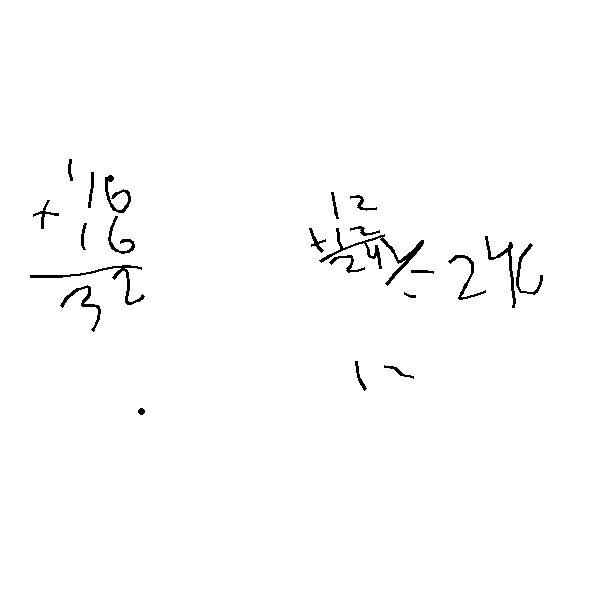 1
16
+ 16
32
12
+ 12
24
= 246
1